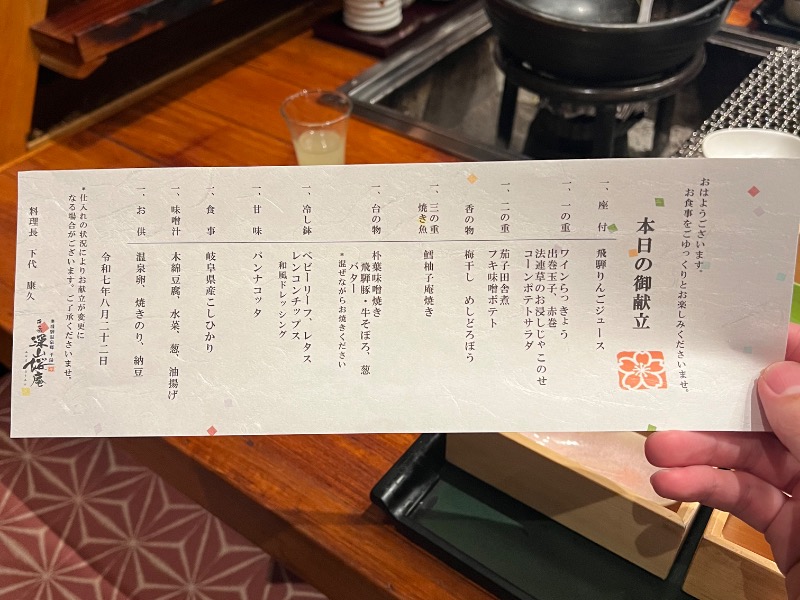 おはようございます。
お食事をごゆっくりとお楽しみくださいませ。
本日の御献立
一、座付 飛騨りんごジュース
一、一の重 ワインらっきょう
出巻玉子、赤巻
法連草のお浸しじゃこのせ
コーンポテトサラダ
一、二の重 茄子田舎煮
フキ味噌ポテト
香の物 梅干し めしどろぼう
一、三の重
焼き魚 鱈柚子庵焼き
一、台の物 朴葉味噌焼き
飛騨豚・牛そぼろ、葱
バター
*混ぜながらお焼きください
一、冷し鉢 ベビーリーフ、レタス
レンコンチップス
和風ドレッシング
一、甘味 パンナコッタ
一、食事 岐阜県産こしひかり
一、味噌汁 木綿豆腐、水菜、葱、油揚げ
一、お供 温泉卵、焼きのり、納豆
令和七年八月二十二日
*仕入れの状況によりお献立が変更に
なる場合がございます。ご了承くださいませ。
料理長 下代 康久
深山桜庵